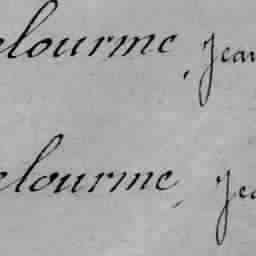 elourme, Jean
elourme, Jea